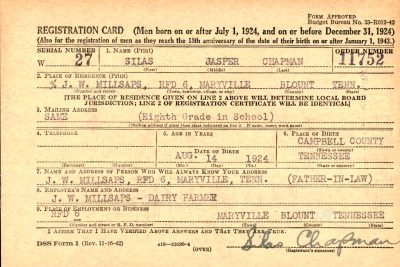 FORM APPROVED
Budget Bureau No. 33-R012-42
REGISTRATION CARD (Men born on or after July 1, 1924, and on or before December 31, 1924)
(Also for the registration of men as they reach the 18th anniversary of the date of their birth on or after January 1, 1943.)
SERIAL NUMBER 1. NAME (Print) ORDER NUMBER
W 27 SILAS JASPER CHAPMAN 11752
(First) (Middle) (Last)
2. PLACE OF RESIDENCE (Print)
% J. W. MILLSAPS, RFD 6, MARYVILLE BLOUNT TENN.
(Number and street) (Town, township, village, or city) (County) (State)
[THE PLACE OF RESIDENCE GIVEN ON LINE 2 ABOVE WILL DETERMINE LOCAL BOARD
JURISDICTION; LINE 2 OF REGISTRATION CERTIFICATE WILL BE IDENTICAL]
3. MAILING ADDRESS
SAME (Eighth Grade in School)
[Mailing address if other than place indicated on line 2. If same, insert word same]
4. TELEPHONE 5. AGE IN YEARS 6. PLACE OF BIRTH
CAMPBELL COUNTY
DATE OF BIRTH (Town or county)
AUG. 14 1924 TENNESSEE
(Exchange) (Number) (Mo.) (Day) (Yr.) (State or country)
7. NAME AND ADDRESS OF PERSON WHO WILL ALWAYS KNOW YOUR ADDRESS
J. W. MILLSAPS, RFD 6, MARYVILLE, TENN. (FATHER-IN-LAW)
8. EMPLOYER'S NAME AND ADDRESS
J. W. MILLSAPS - DAIRY FARMER
9. PLACE OF EMPLOYMENT OR BUSINESS
RFD 6 MARYVILLE BLOUNT TENNESSEE
(Number and street or R. F. D. number) (Town) (County) (State)
I AFFIRM THAT I HAVE VERIFIED ABOVE ANSWERS AND THAT THEY ARE TRUE.
DSS Form 1 (Rev. 11-16-42) (OVER) Silas Chapman
(Registrant's signature)